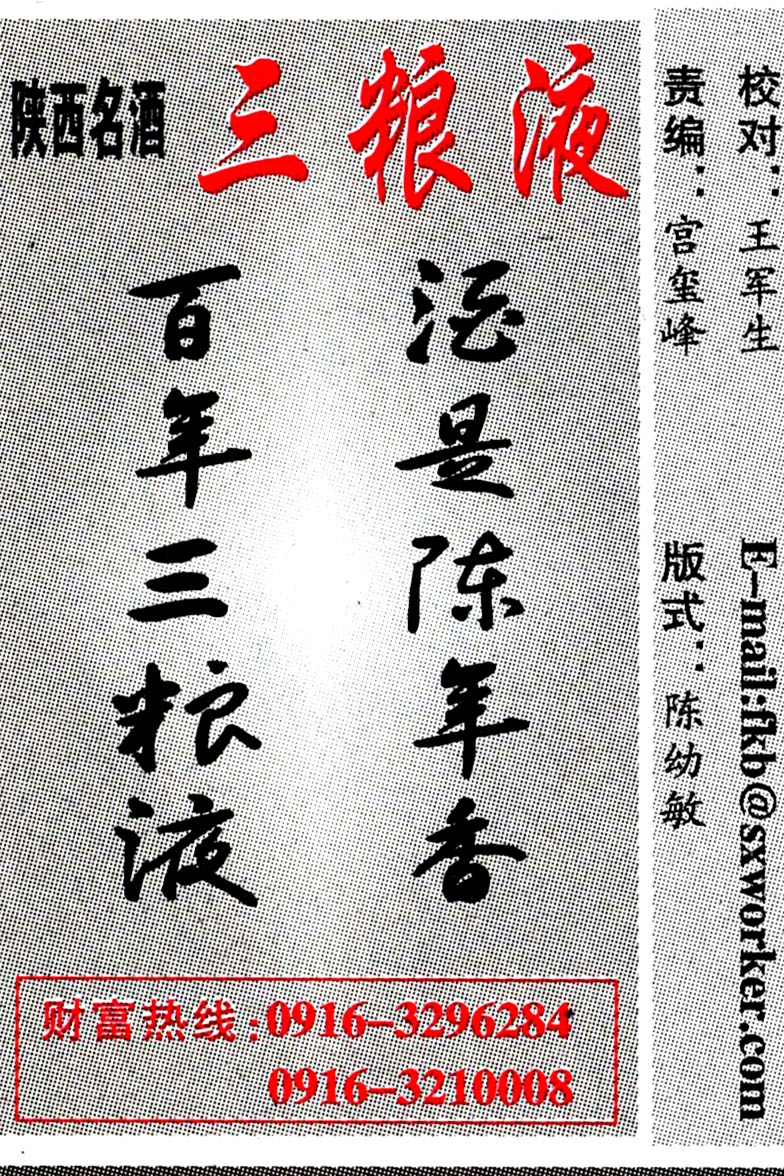 陕西名酒 三粮液
酒是陈年香
百年三粮液
财富热线:0916-3296284
0916-3210008
责编:宫玺峰 版式:陈幼敏
校对:王军生 E-mail:fkb@sxworker.com